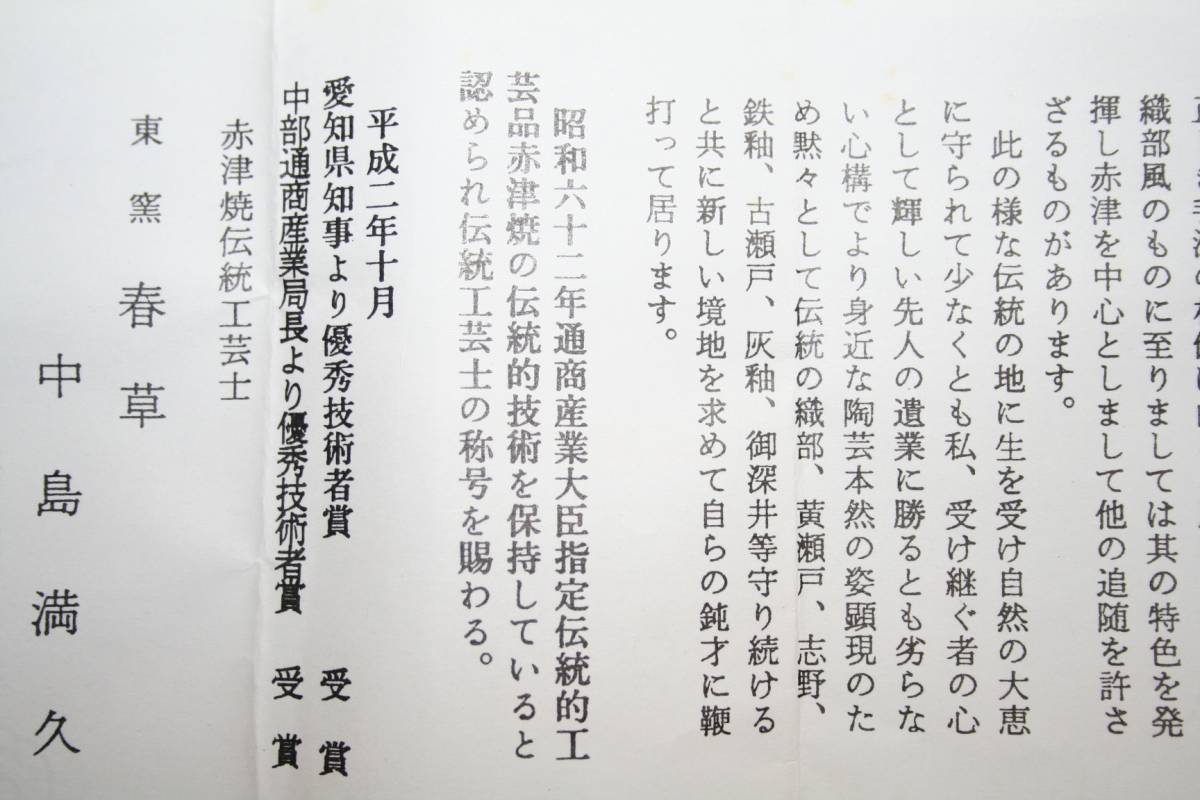 織部風のものに至りましては其の特色を発
揮し赤津を中心としまして他の追随を許さ
ざるものがあります。
此の様な伝統の地に生を受け自然の大恵
に守られて少なくとも私、受け継ぐ者の心
として輝しい先人の遺業に勝るとも劣らな
い心構でより身近な陶芸本然の姿顕現のた
め黙々として伝統の織部、黄瀬戸、志野、
鉄釉、古瀬戸、灰釉、御深井等守り続ける
と共に新しい境地を求めて自らの鈍才に鞭
打って居ります。
昭和六十二年通商産業大臣指定伝統的工
芸品赤津焼の伝統的技術を保持していると
認められ伝統工芸士の称号を賜わる。
平成二年十月
愛知県知事より優秀技術者賞 受賞
中部通商産業局長より優秀技術者賞 受賞
赤津焼伝統工芸士
東窯 春草
中島満久